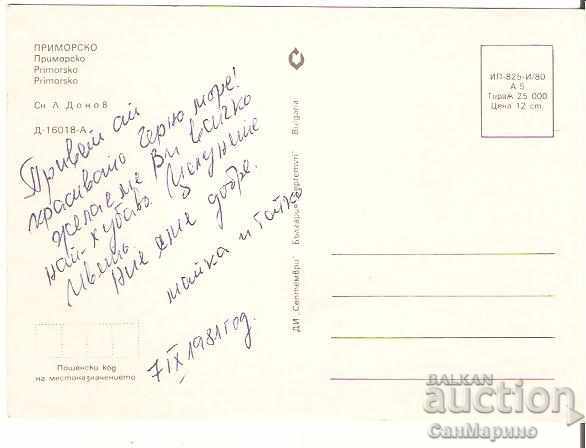 ПРИМОРСКО
Приморско
Primorsko
Primorsko
Сн Л Донов
Д-16018-А
Привет от
красивото Черно море!
желаеме Ви всичко
най-хубаво. Целунете
Ние сме добре.
майка и татко
7 IX 1981 год.
Пощенски код
на местоназначението
ДИ „Септември" България
Bulgaria
ИП-825-И/80
А 5
Тираж 25 000
Цена 12 ст.
BALKAN
auction
СанМарино